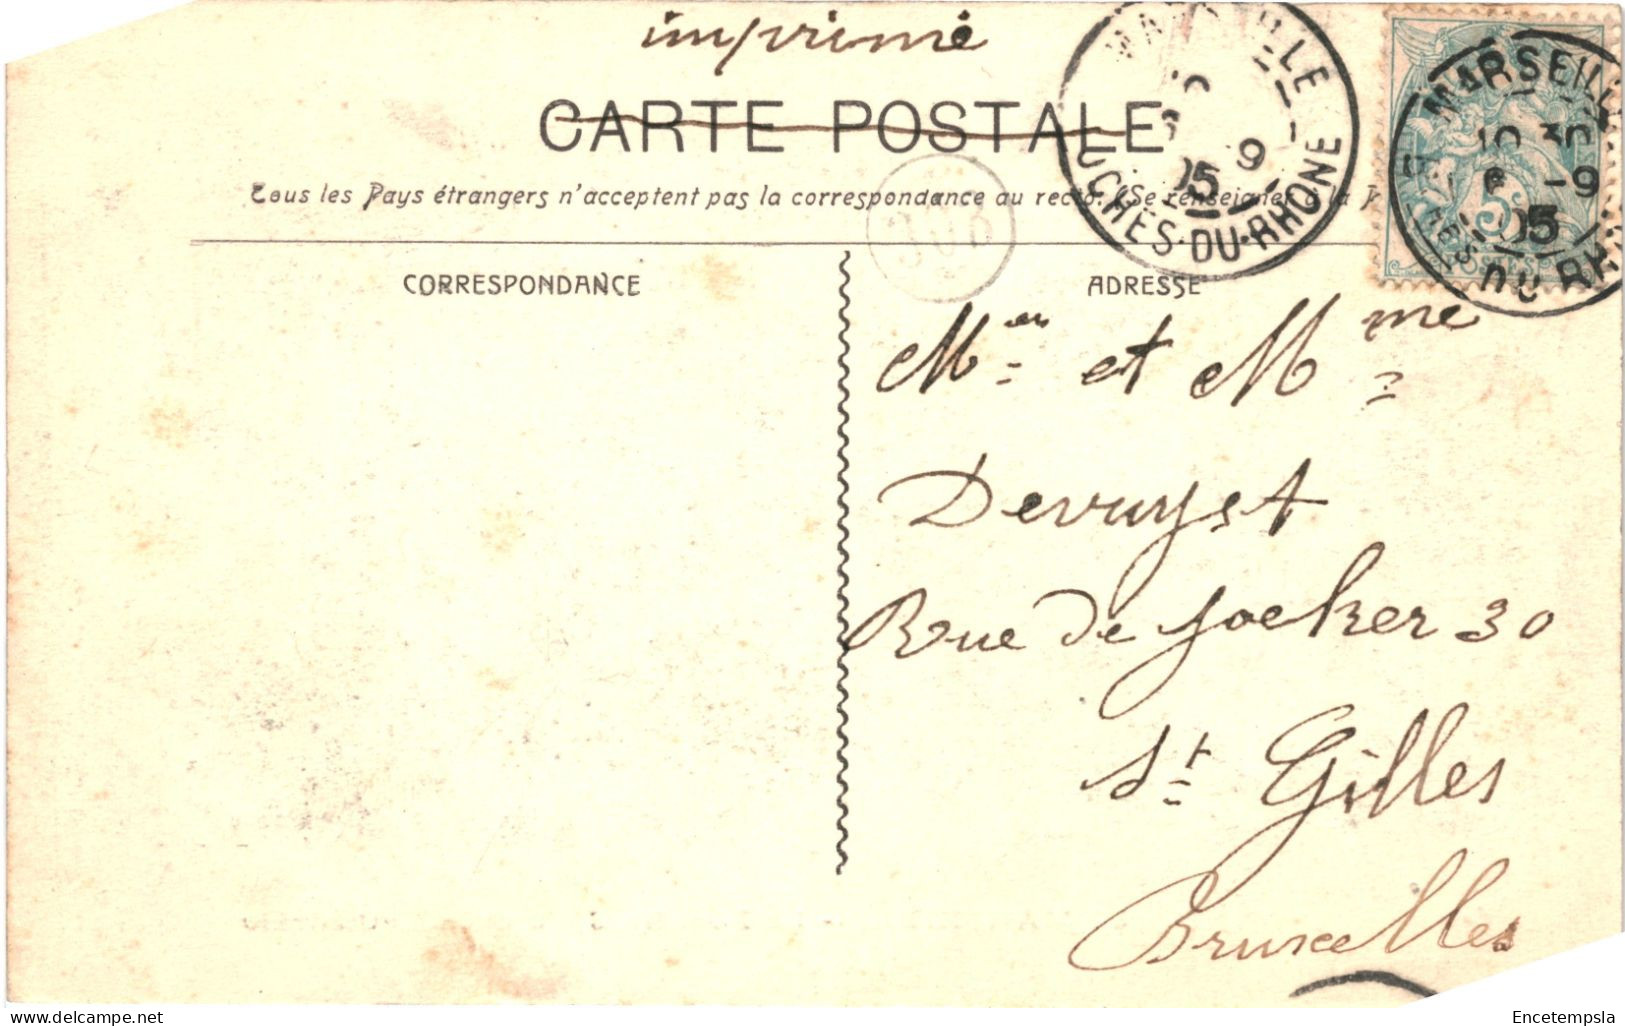 imprimé
CARTE POSTALE
Tous les Pays étrangers n'acceptent pas la correspondance au recto. (Se renseigner à la
MARSEILLE
6 9
05
BOUCHES-DU-RHONE
MARSEILLE
10 30
6 -9
05
DU RHONE
5c
POSTES
CORRESPONDANCE
ADRESSE
Mr et Mme
Devuyst
Rue de Joncker 30
St Gilles
Bruxelles
Encetempsla